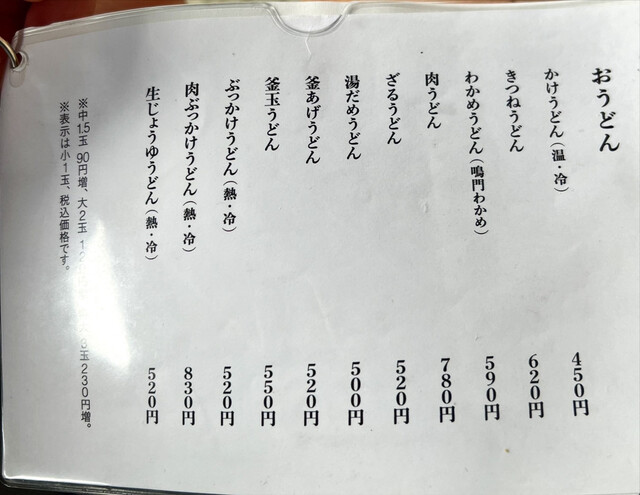 おうどん
かけうどん（温・冷） 450円
きつねうどん 620円
わかめうどん（鳴門わかめ） 590円
肉うどん 780円
ざるうどん 520円
湯だめうどん 500円
釜あげうどん 520円
釜玉うどん 550円
ぶっかけうどん（熱・冷） 520円
肉ぶっかけうどん（熱・冷） 830円
生じょうゆうどん（熱・冷） 520円
※中1.5玉 90円増、大2玉 玉230円増。
※表示は小1玉、税込価格です。